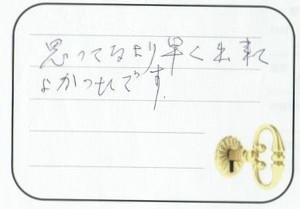 思ってるより早く出来て
よかったです。